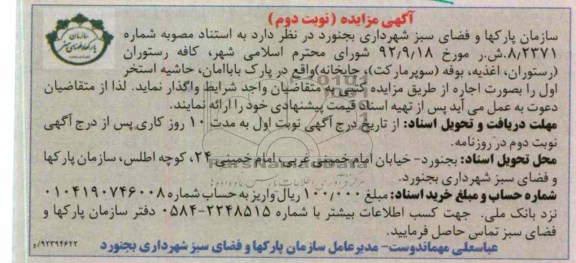 آگهی مزایده (نوبت دوم)
سازمان پارکها و فضای سبز شهرداری بجنورد در نظر دارد به استناد مصوبه شماره
۸/۲۳۷۱.ش.ر مورخ ۹۲/۹/۱۸ شورای محترم اسلامی شهر، کافه رستوران
(رستوران، اغذیه، بوفه (سوپرمارکت)، چایخانه)واقع در پارک باباامان، حاشیه استخر
اول را بصورت اجاره از طریق مزایده کتبی به متقاضیان واجد شرایط واگذار نماید. لذا از متقاضیان
دعوت به عمل می آید پس از تهیه اسناد قیمت پیشنهادی خود را ارائه نمایند.
مهلت دریافت و تحویل اسناد: از تاریخ درج آگهی نوبت اول به مدت ۱۰ روز کاری پس از درج آگهی
نوبت دوم در روزنامه.
محل تحویل اسناد: بجنورد- خیابان امام خمینی غربی، امام خمینی ۲۴، کوچه اطلس، سازمان پارکها
و فضای سبز شهرداری بجنورد.
شماره حساب و مبلغ خرید اسناد: مبلغ ۱۰۰/۰۰۰ ریال واریز به حساب شماره ۰۱۰۴۱۹۰۷۴۶۰۰۸
نزد بانک ملی. جهت کسب اطلاعات بیشتر با شماره ۲۲۴۸۵۱۵-۰۵۸۴ دفتر سازمان پارکها و
فضای سبز تماس حاصل فرمایید.
عباسعلی مهماندوست- مدیرعامل سازمان پارکها و فضای سبز شهرداری بجنورد
۹۲۳۹۴۶۲۲/و